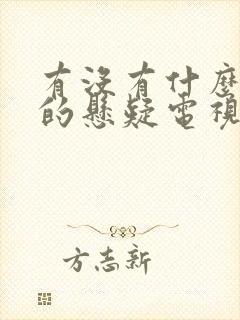 有沒有什麼
的懸疑電視
方志新